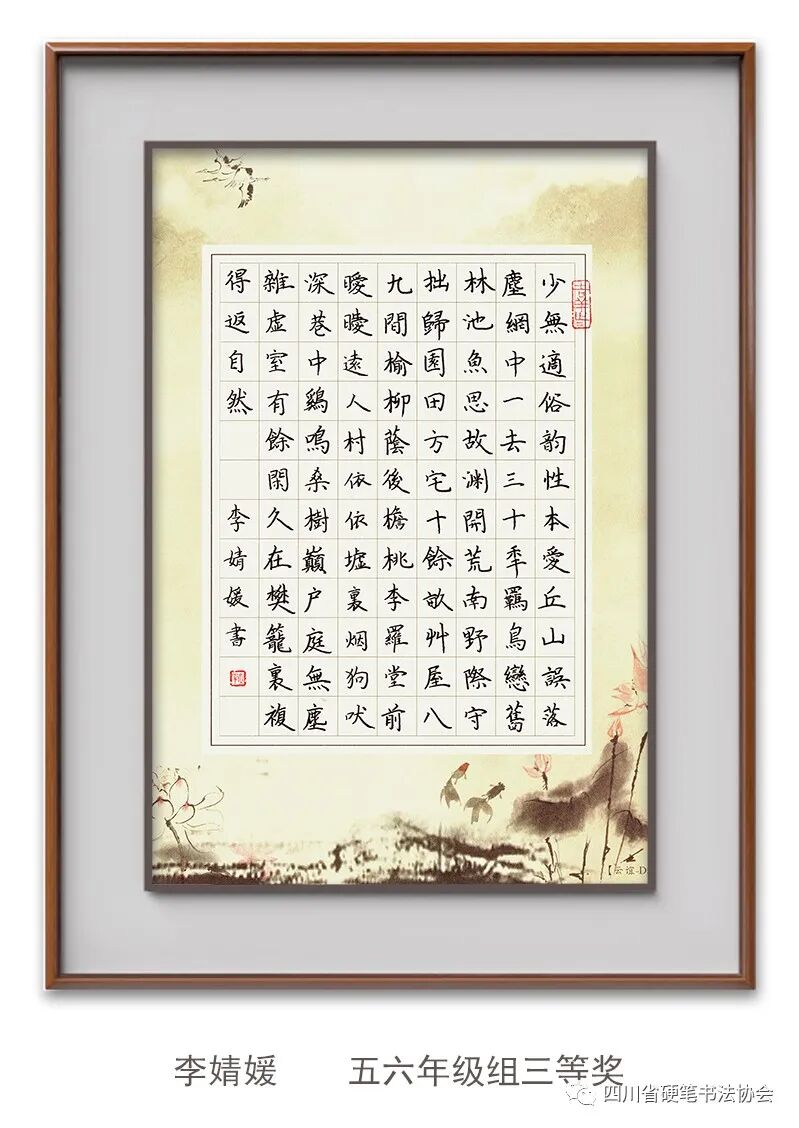 少無適俗韵性本愛丘山誤落
塵網中一去三十秊羈鳥戀舊
林池魚思故渊開荒南野際守
拙歸園田方宅十餘畝艸屋八
九間榆柳蔭後檐桃李羅堂前
曖曖遠人村依依墟裏烟狗吠
深巷中鷄鳴桑樹巔户庭無塵
雜虚室有餘閑久在樊籠裏複
得返自然
李婧媛書
李婧媛 五六年级组三等奖
四川省硬笔书法协会